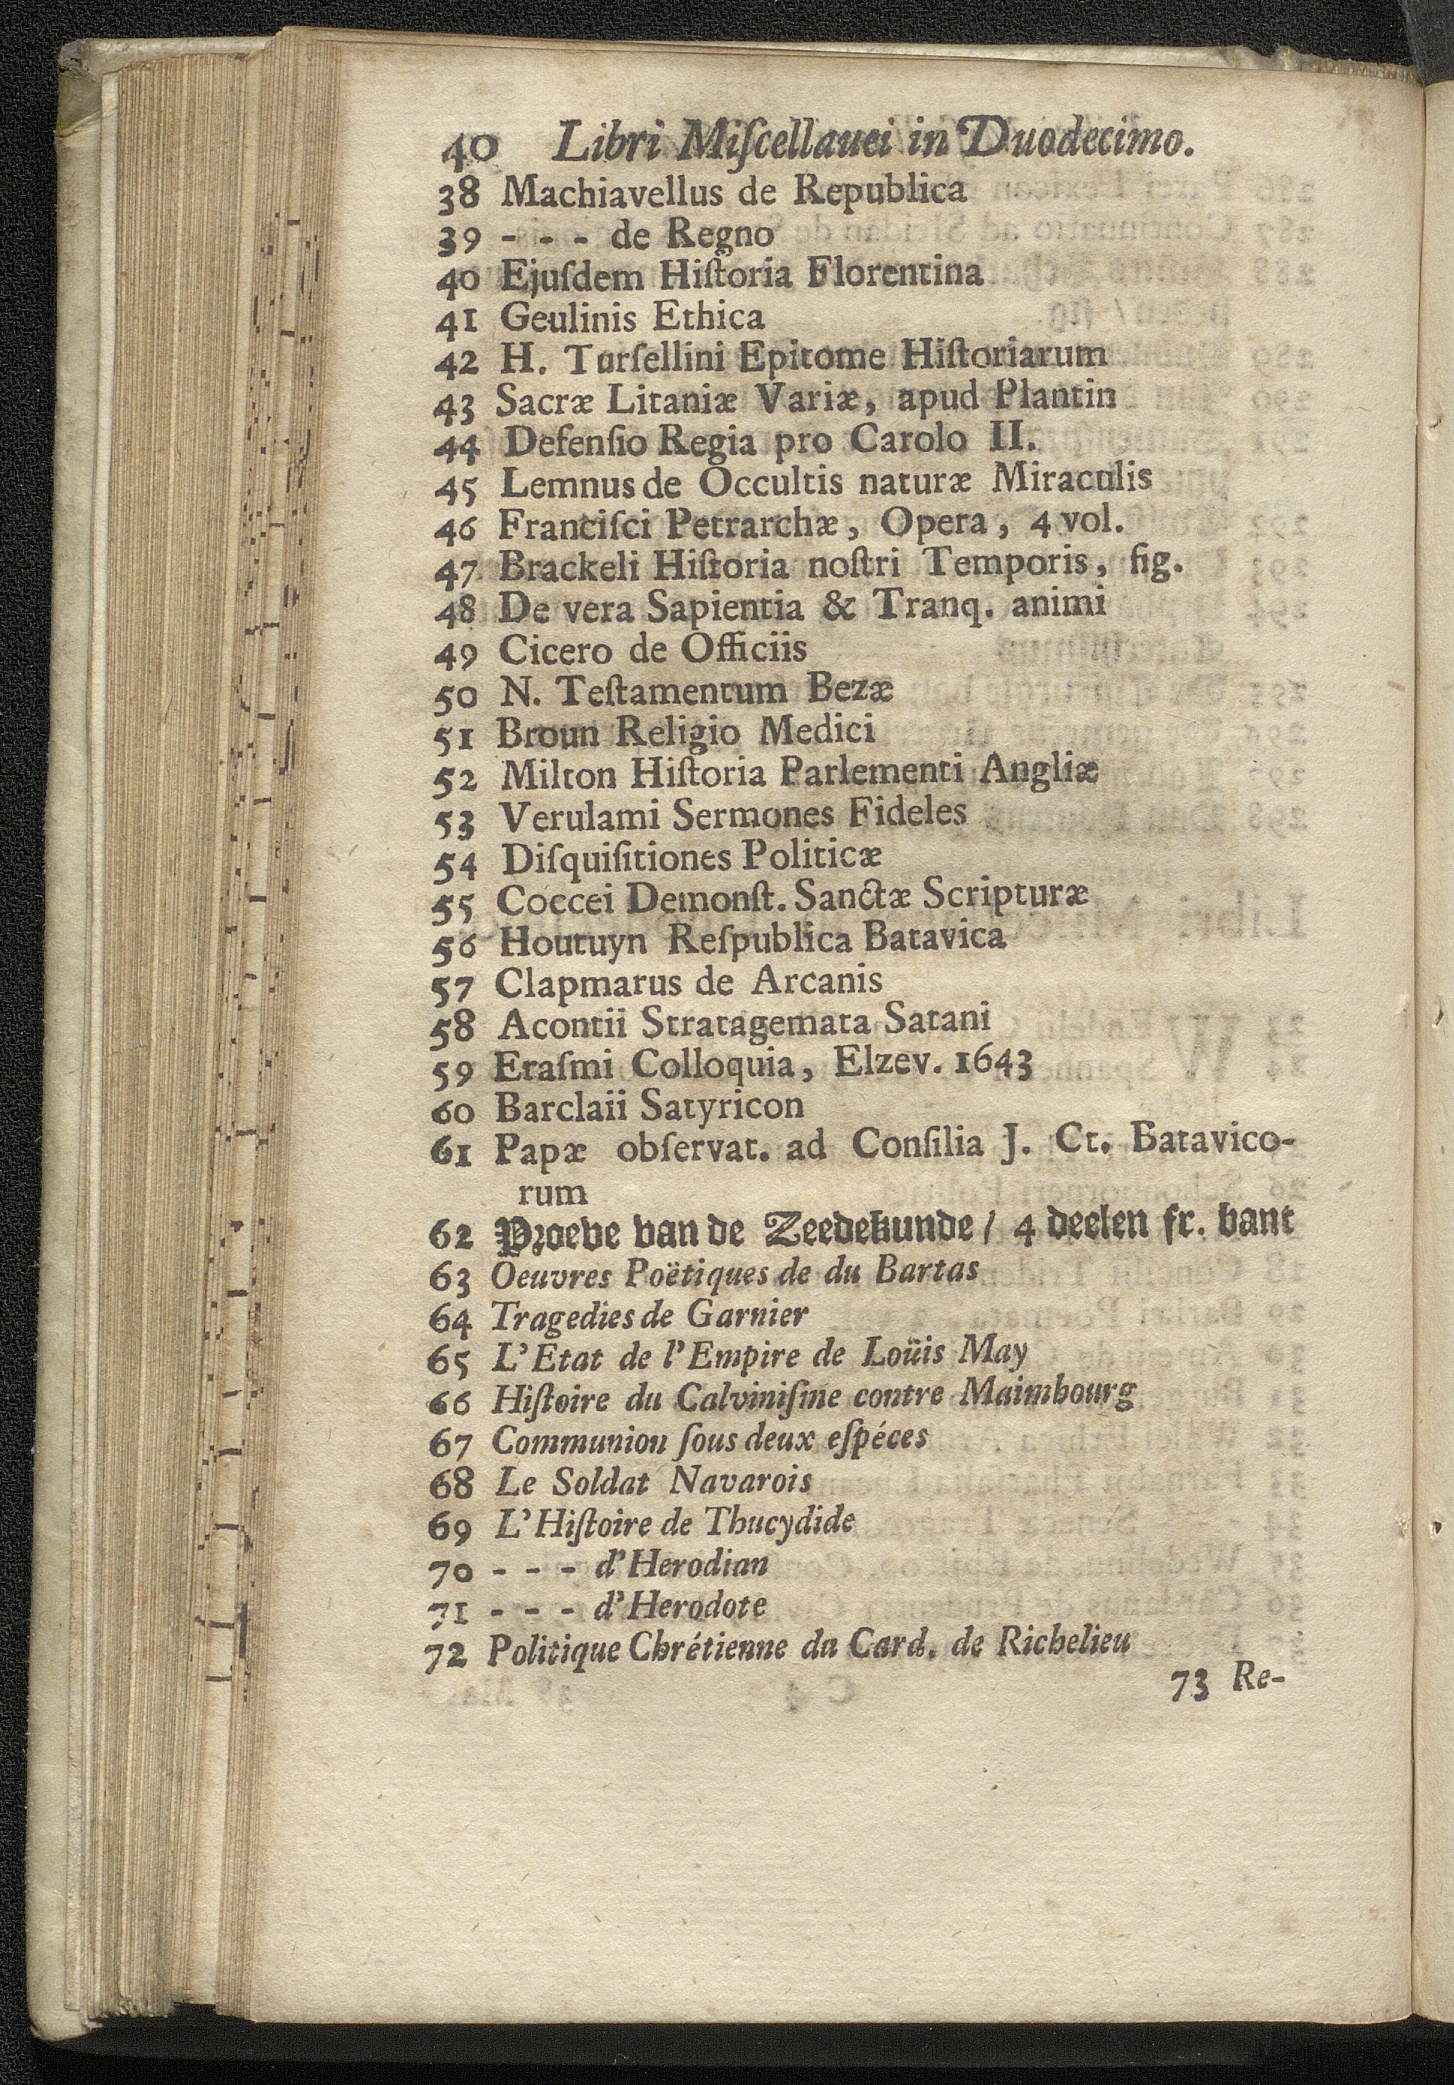 40 Libri Miſcellauei in Duodecimo.
38 Machiavellus de Republica
39 - - - de Regno
40 Ejuſdem Hiſtoria Florentina
41 Geulinis Ethica
42 H. Turſellini Epitome Hiſtoriarum
43 Sacræ Litaniæ Variæ, apud Plantin
44 Defenſio Regia pro Carolo II.
45 Lemnus de Occultis naturæ Miraculis
46 Franciſci Petrarchæ, Opera, 4 vol.
47 Brackeli Hiſtoria noſtri Temporis, fig.
48 De vera Sapientia & Tranq. animi
49 Cicero de Officiis
50 N. Teſtamentum Bezæ
51 Broun Religio Medici
52 Milton Hiſtoria Parlementi Angliæ
53 Verulami Sermones Fideles
54 Diſquiſitiones Politicæ
55 Coccei Demonſt. Sanctæ Scripturæ
56 Houtuyn Reſpublica Batavica
57 Clapmarus de Arcanis
58 Acontii Stratagemata Satani
59 Eraſmi Colloquia, Elzev. 1643
60 Barclaii Satyricon
61 Papæ obſervat. ad Conſilia J. Ct. Batavico-
rum
62 Proeve van de Zeedekunde / 4 deelen fr. bant
63 Oeuvres Poëtiques de du Bartas
64 Tragedies de Garnier
65 L'Etat de l'Empire de Loüis May
66 Hiſtoire du Calviniſme contre Maimbourg
67 Communion ſous deux eſpéces
68 Le Soldat Navarois
69 L'Hiſtoire de Thucydide
70 - - - d'Herodian
71 - - - d'Herodote
72 Politique Chrétienne du Card. de Richelieu
73 Re-